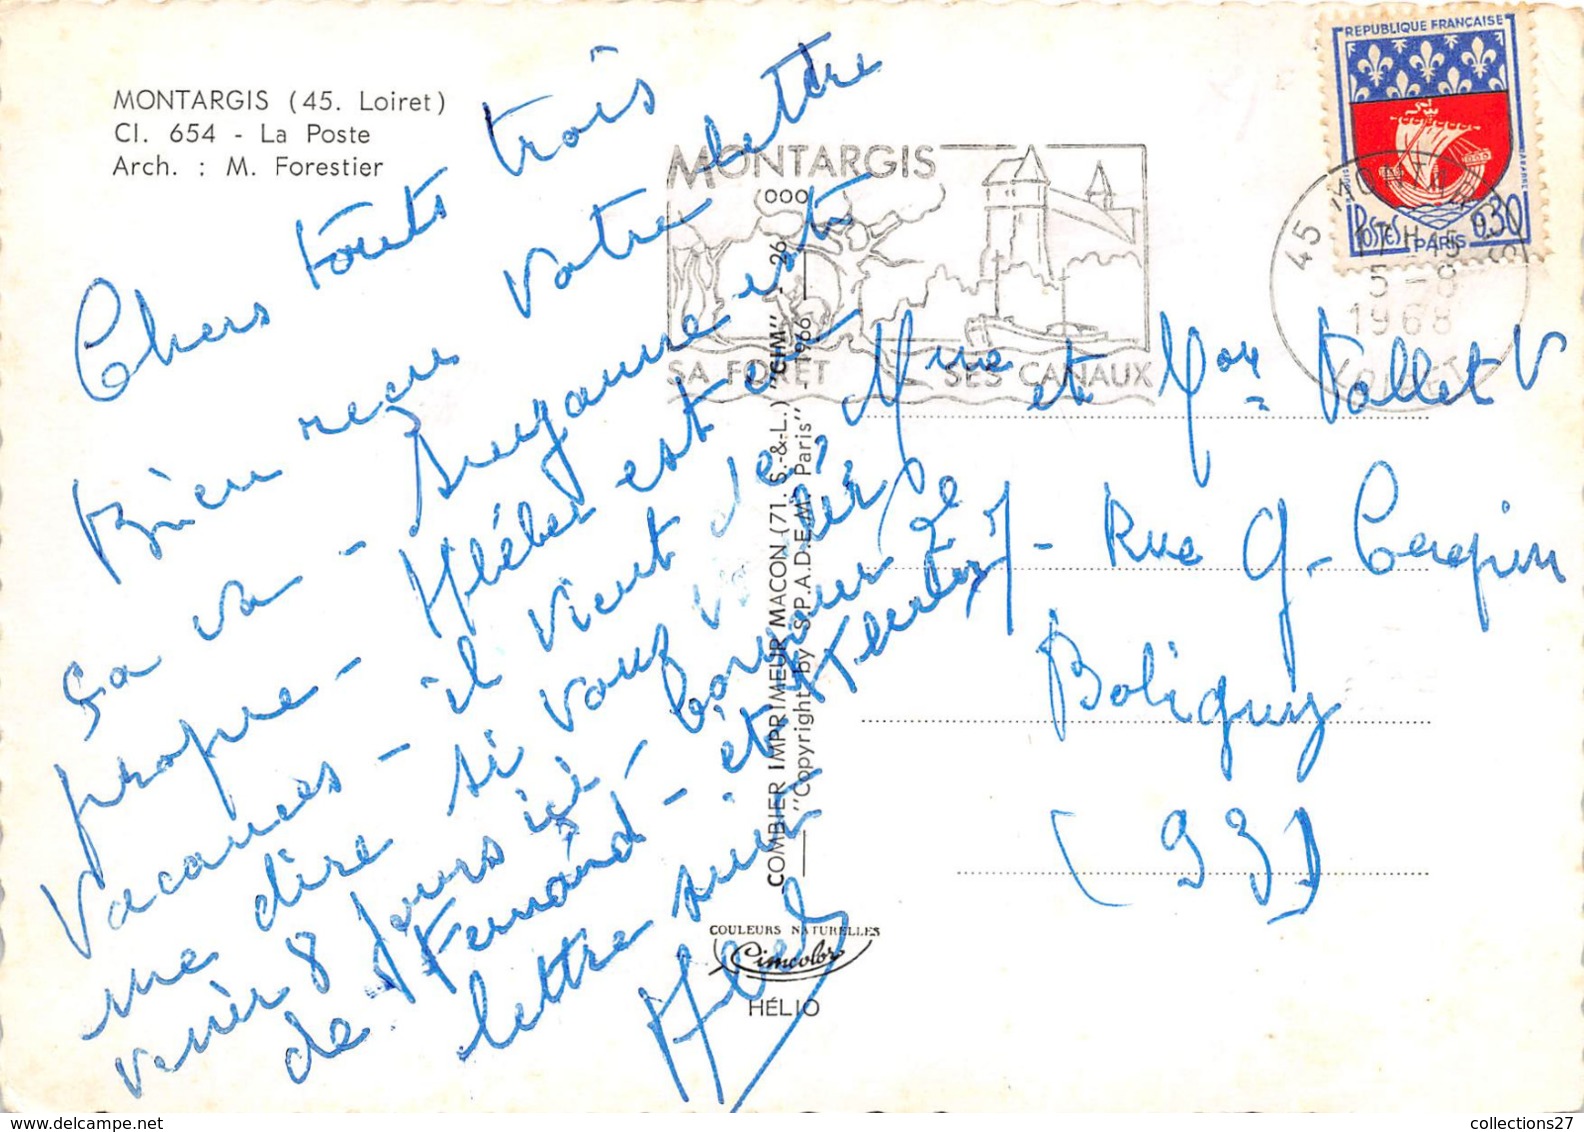 MONTARGIS (45. Loiret)
Cl. 654 - La Poste
Arch. : M. Forestier
Chers toute trois
Bien recu votre lettre
sa va - Suzanne est
propre - Kléber est en
vacances - il vient de
me dire si vous
venir 8 jours ici, bonjour
de Fernand - et
lettre suit
MONTARGIS
SA FORÊT SES CANAUX
COMBIER IMPRIMEUR MACON (71. S.-&-L.) "CIM"
"Copyright by S.P.A.D.E.M. Paris" - 1966 - 26
COULEURS NATURELLES
Cimcolor
HÉLIO
REPUBLIQUE FRANÇAISE
POSTES PARIS 0,30
45 MONTARGIS
17H45
5-8
1968
LOIRET
Mme et Mr Vallet V
Rue G-
Bobigny
(93)
collections27